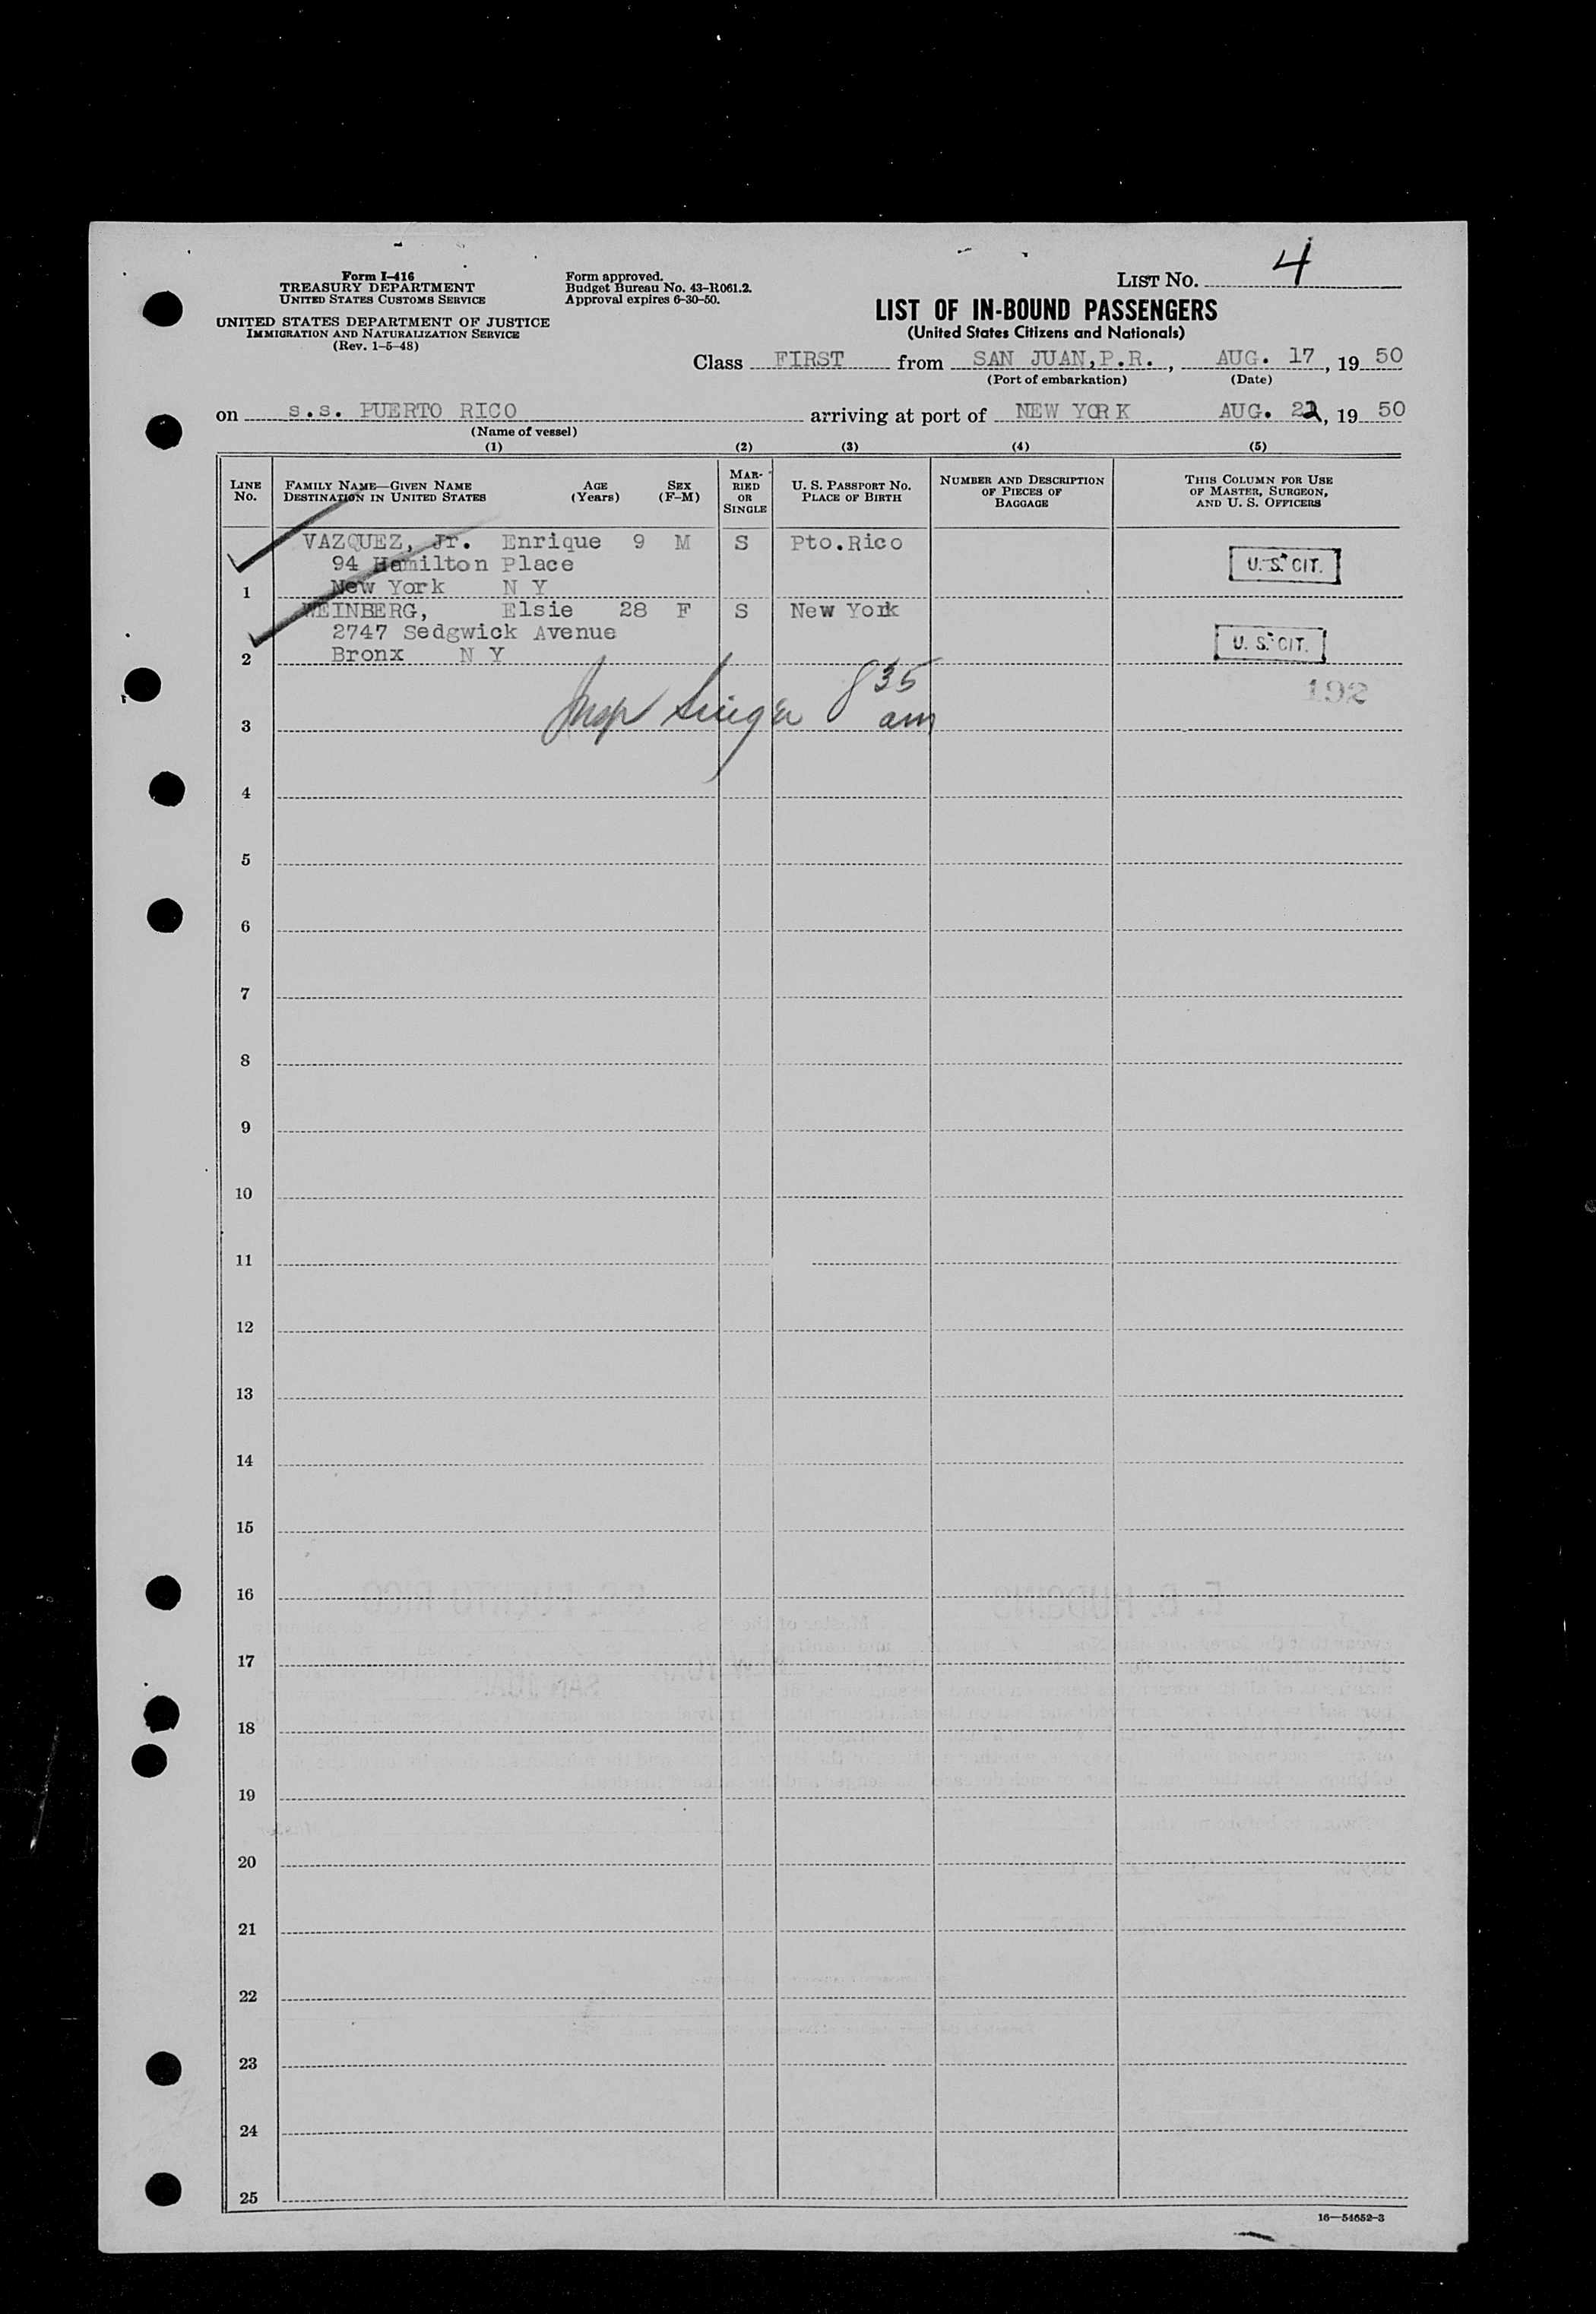 LIST NO. 4
Form I-416
TREASURY DEPARTMENT
UNITED STATES CUSTOMS SERVICE
UNITED STATES DEPARTMENT OF JUSTICE
IMMIGRATION AND NATURALIZATION SERVICE
(Rev. 1-5-48)
Form approved.
Budget Bureau No. 43-R061.2.
Approval expires 6-30-50.
LIST OF IN-BOUND PASSENGERS
(United States Citizens and Nationals)
Class FIRST from SAN JUAN, P.R., AUG. 17, 19 50
(Port of embarkation) (Date)
on s.s. PUERTO RICO arriving at port of NEW YORK AUG. 22, 19 50
(Name of vessel)
(1) (2) (3) (4) (5)
LINE NO.
FAMILY NAME—GIVEN NAME
DESTINATION IN UNITED STATES
AGE
(Years)
SEX
(F-M)
MAR-
RIED
OR
SINGLE
U. S. PASSPORT NO.
PLACE OF BIRTH
NUMBER AND DESCRIPTION
OF PIECES OF
BAGGAGE
THIS COLUMN FOR USE
OF MASTER, SURGEON,
AND U. S. OFFICERS
VAZQUEZ, Jr. Enrique 9 M S Pto.Rico
94 Hamilton Place U. S. CIT.
1 New York N Y
WEINBERG, Elsie 28 F S New York
2747 Sedgwick Avenue U. S. CIT.
2 Bronx N Y
192
Insp Singer 8 35 am
3
4
5
6
7
8
9
10
11
12
13
14
15
16
17
18
19
20
21
22
23
24
25
16—54652-3